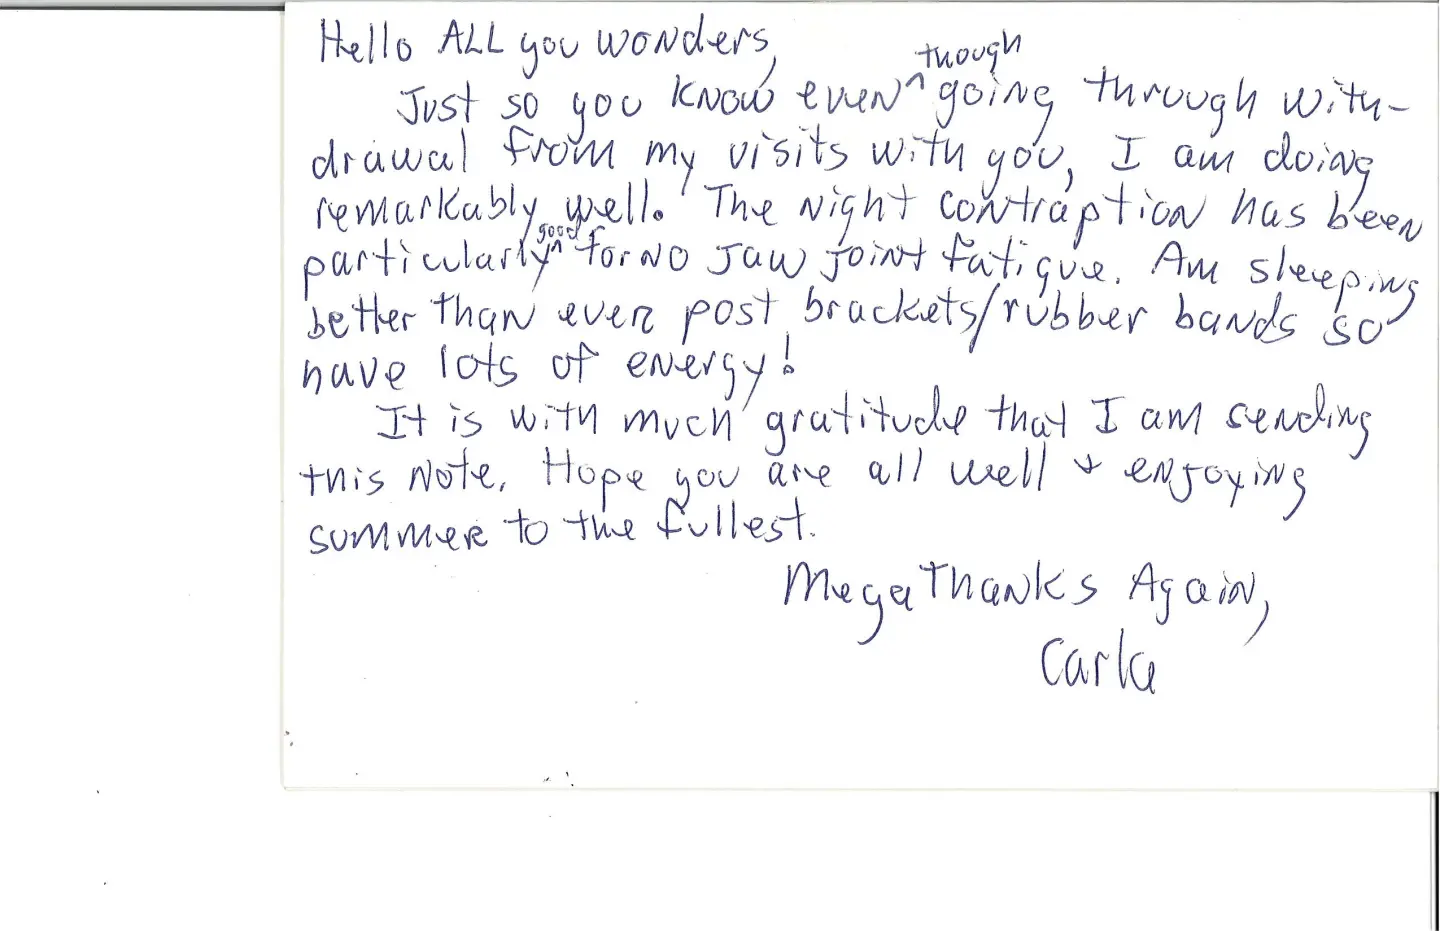 Hello ALL you wonders,
Just so you know even ^though going through with-
drawal from my visits with you, I am doing
remarkably well. The night contraption has been
particularly ^good for no jaw joint fatigue. Am sleeping
better than ever post brackets/rubber bands so
have lots of energy!
It is with much gratitude that I am sending
this note. Hope you are all well + enjoying
summer to the fullest.
Mega Thanks Again,
Carla